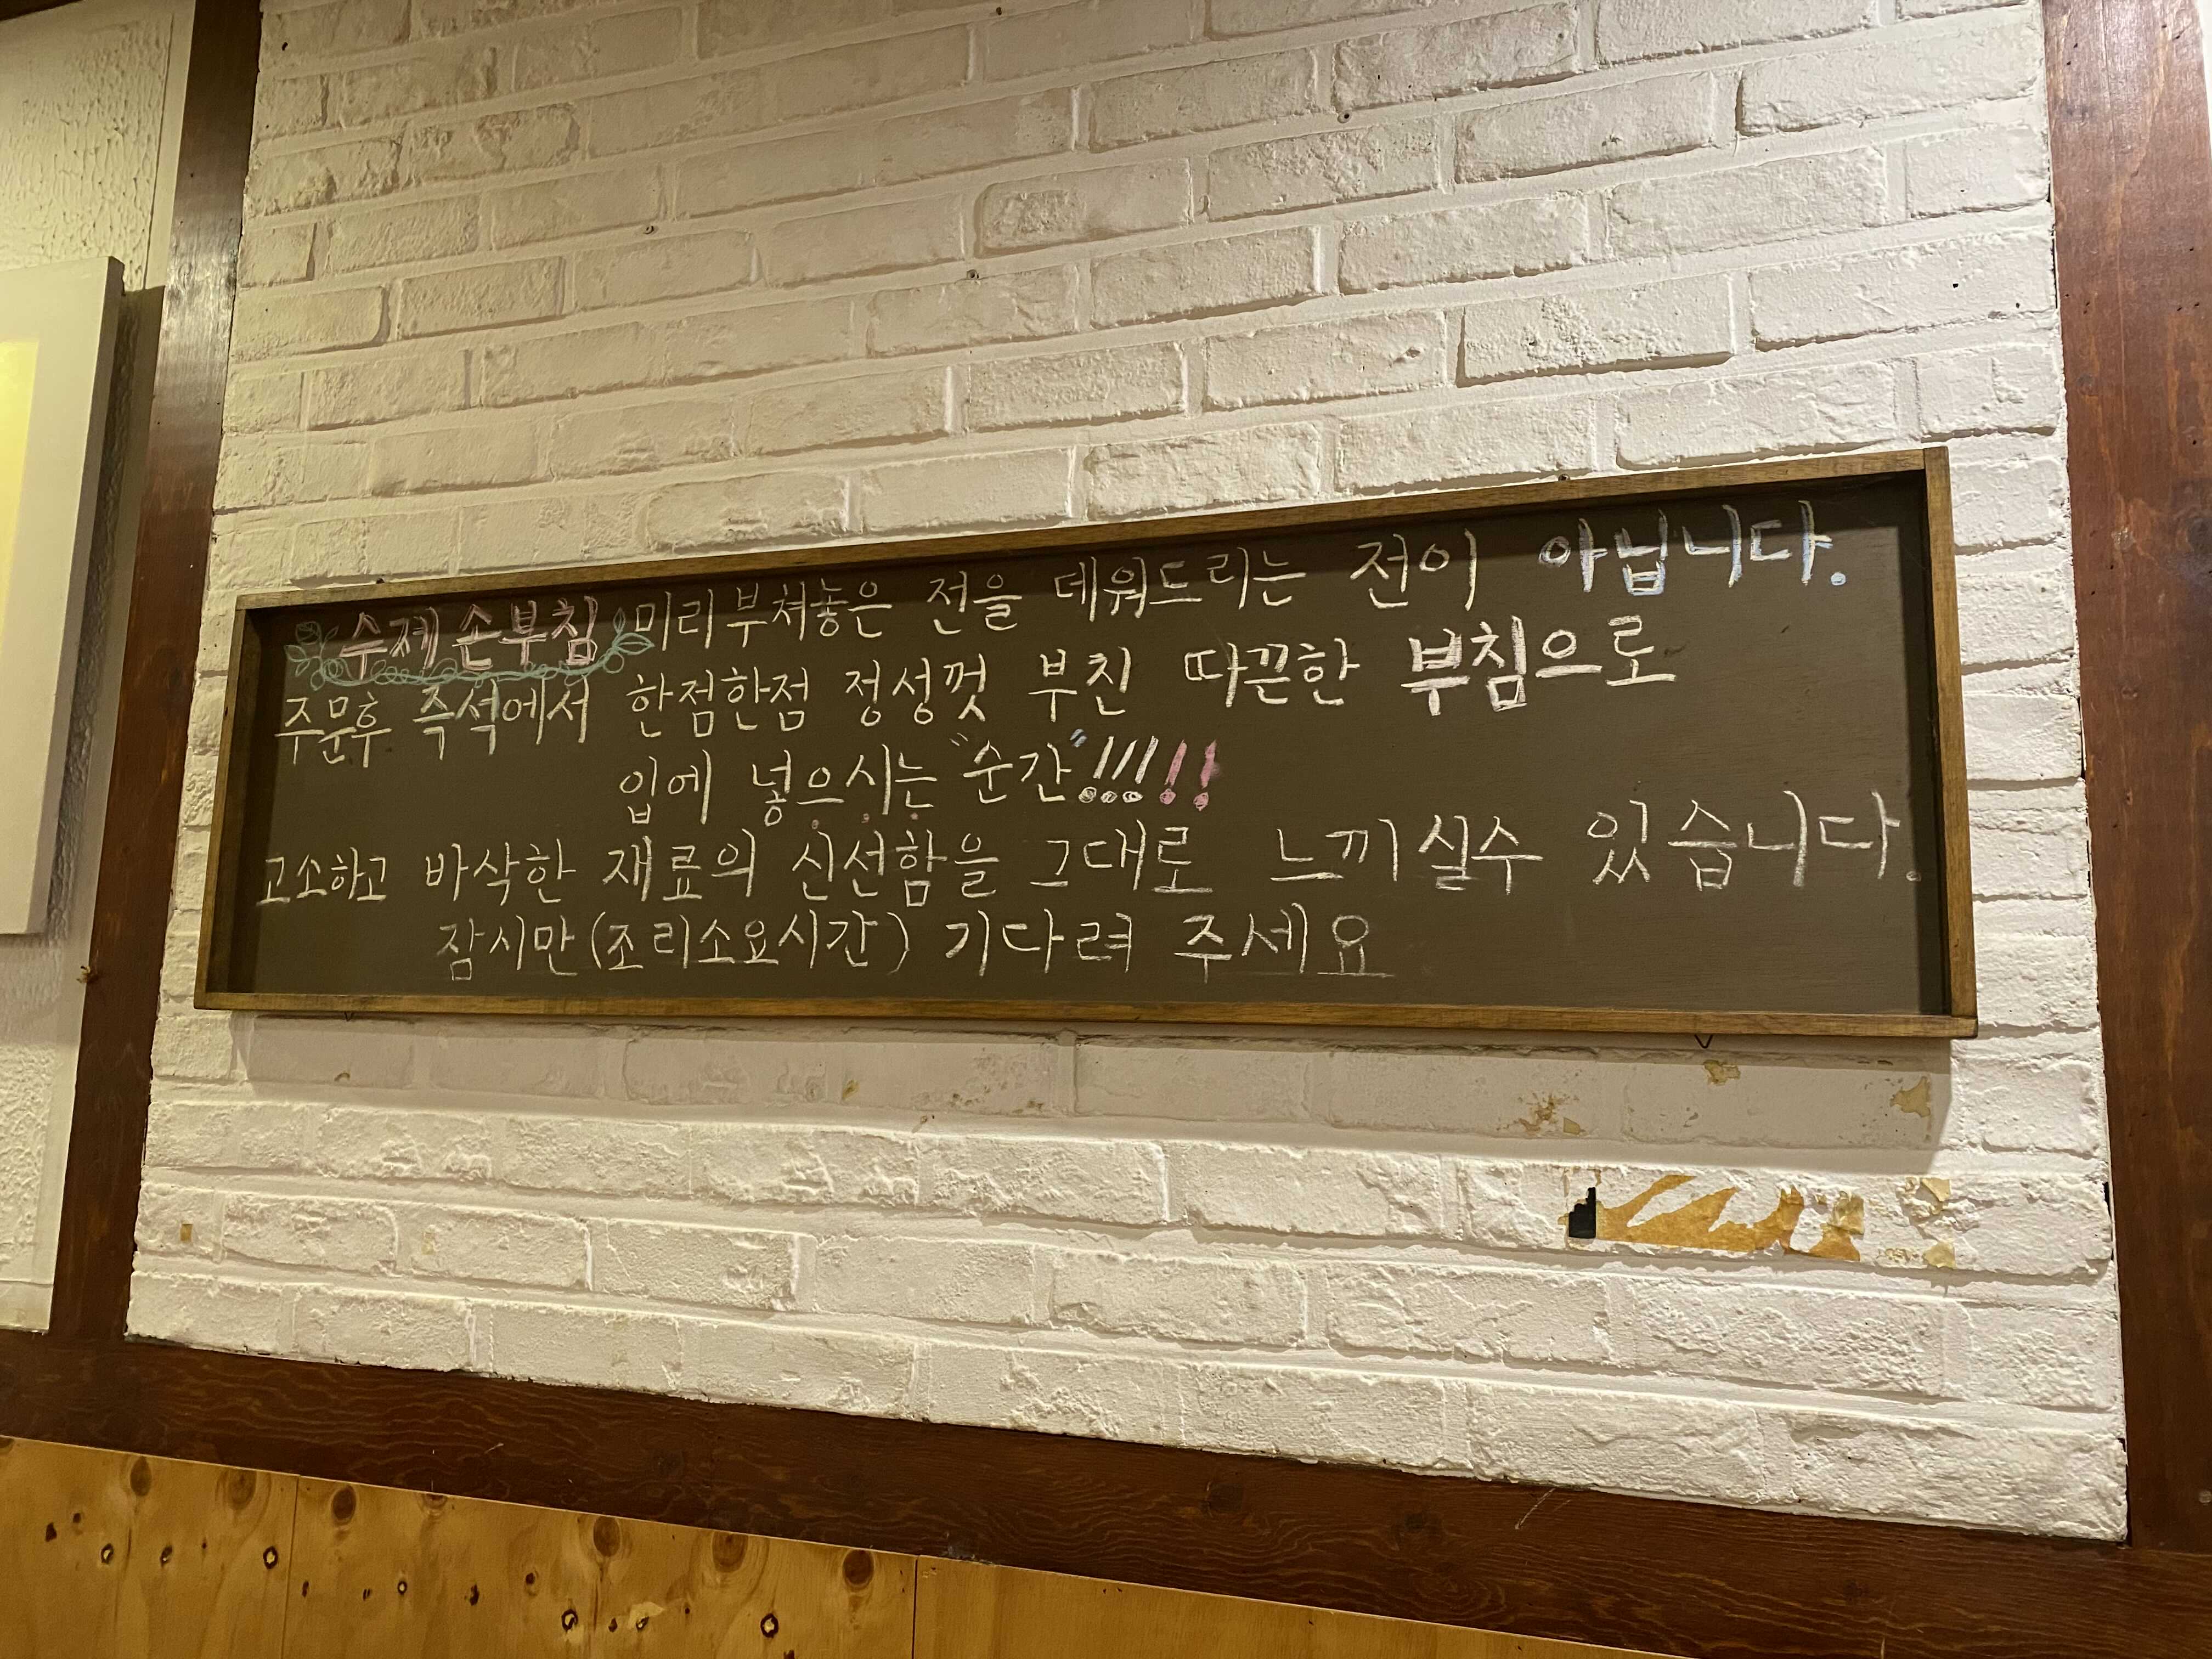 수제손부침 미리부쳐놓은 전을 데워드리는 전이 아닙니다.
주문후 즉석에서 한점한점 정성껏 부친 따끈한 부침으로
입에 넣으시는 "순간"!!!!!
고소하고 바삭한 재료의 신선함을 그대로 느끼실수 있습니다.
잠시만(조리소요시간) 기다려 주세요